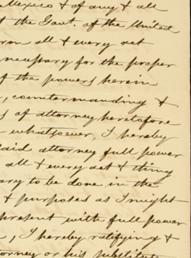 Mexico & of any & all
the Govt. of the United
all & every act
necessary for the proper
of the powers herein
, countermanding &
of attorney heretofore
whatsoever, I hereby
said attorney full power
all & every act & thing
ary to be done in the
& purposes as I might
present with full power
, I hereby ratifying &
torney or his substitute